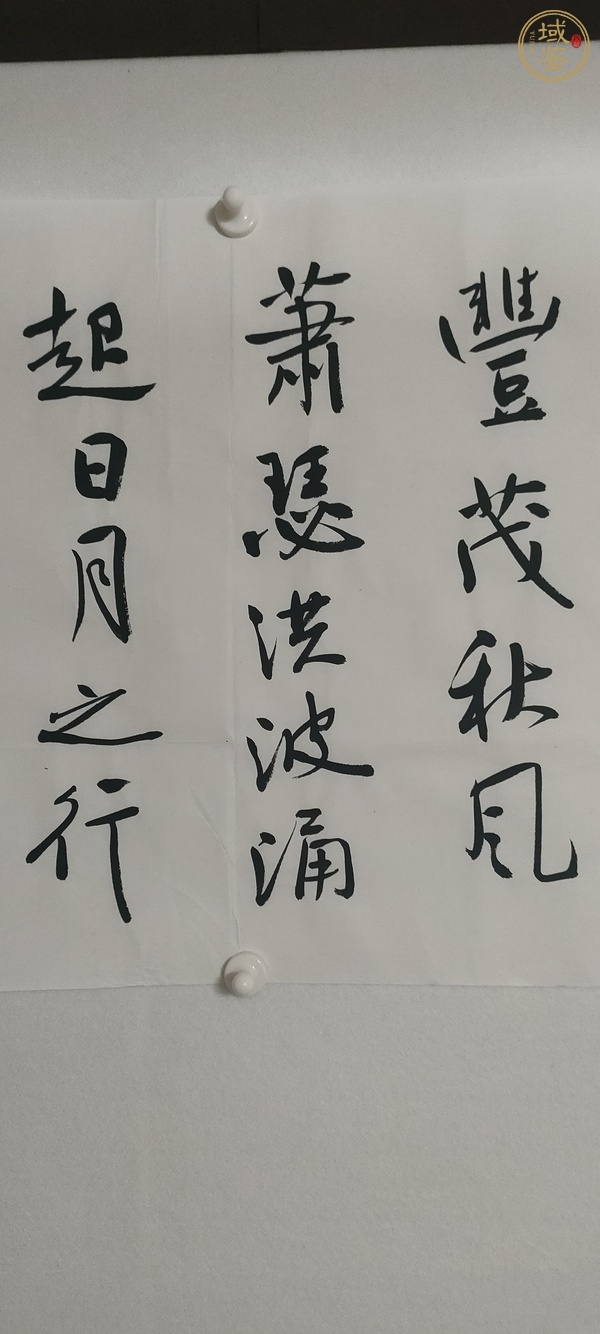 豐茂秋风
蕭瑟洪波涌
起日月之行
域